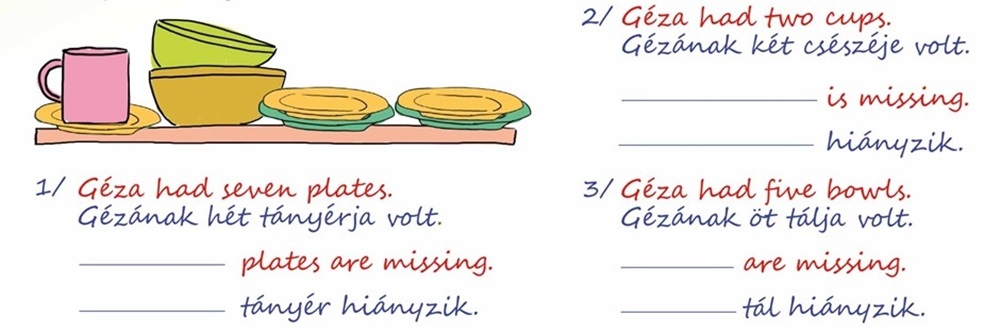 1/ Géza had seven plates.
Gézának hét tányérja volt.
__________ plates are missing.
__________ tányér hiányzik.
2/ Géza had two cups.
Gézának két csészéje volt.
__________ is missing.
__________ hiányzik.
3/ Géza had five bowls.
Gézának öt tálja volt.
__________ are missing.
__________ tál hiányzik.